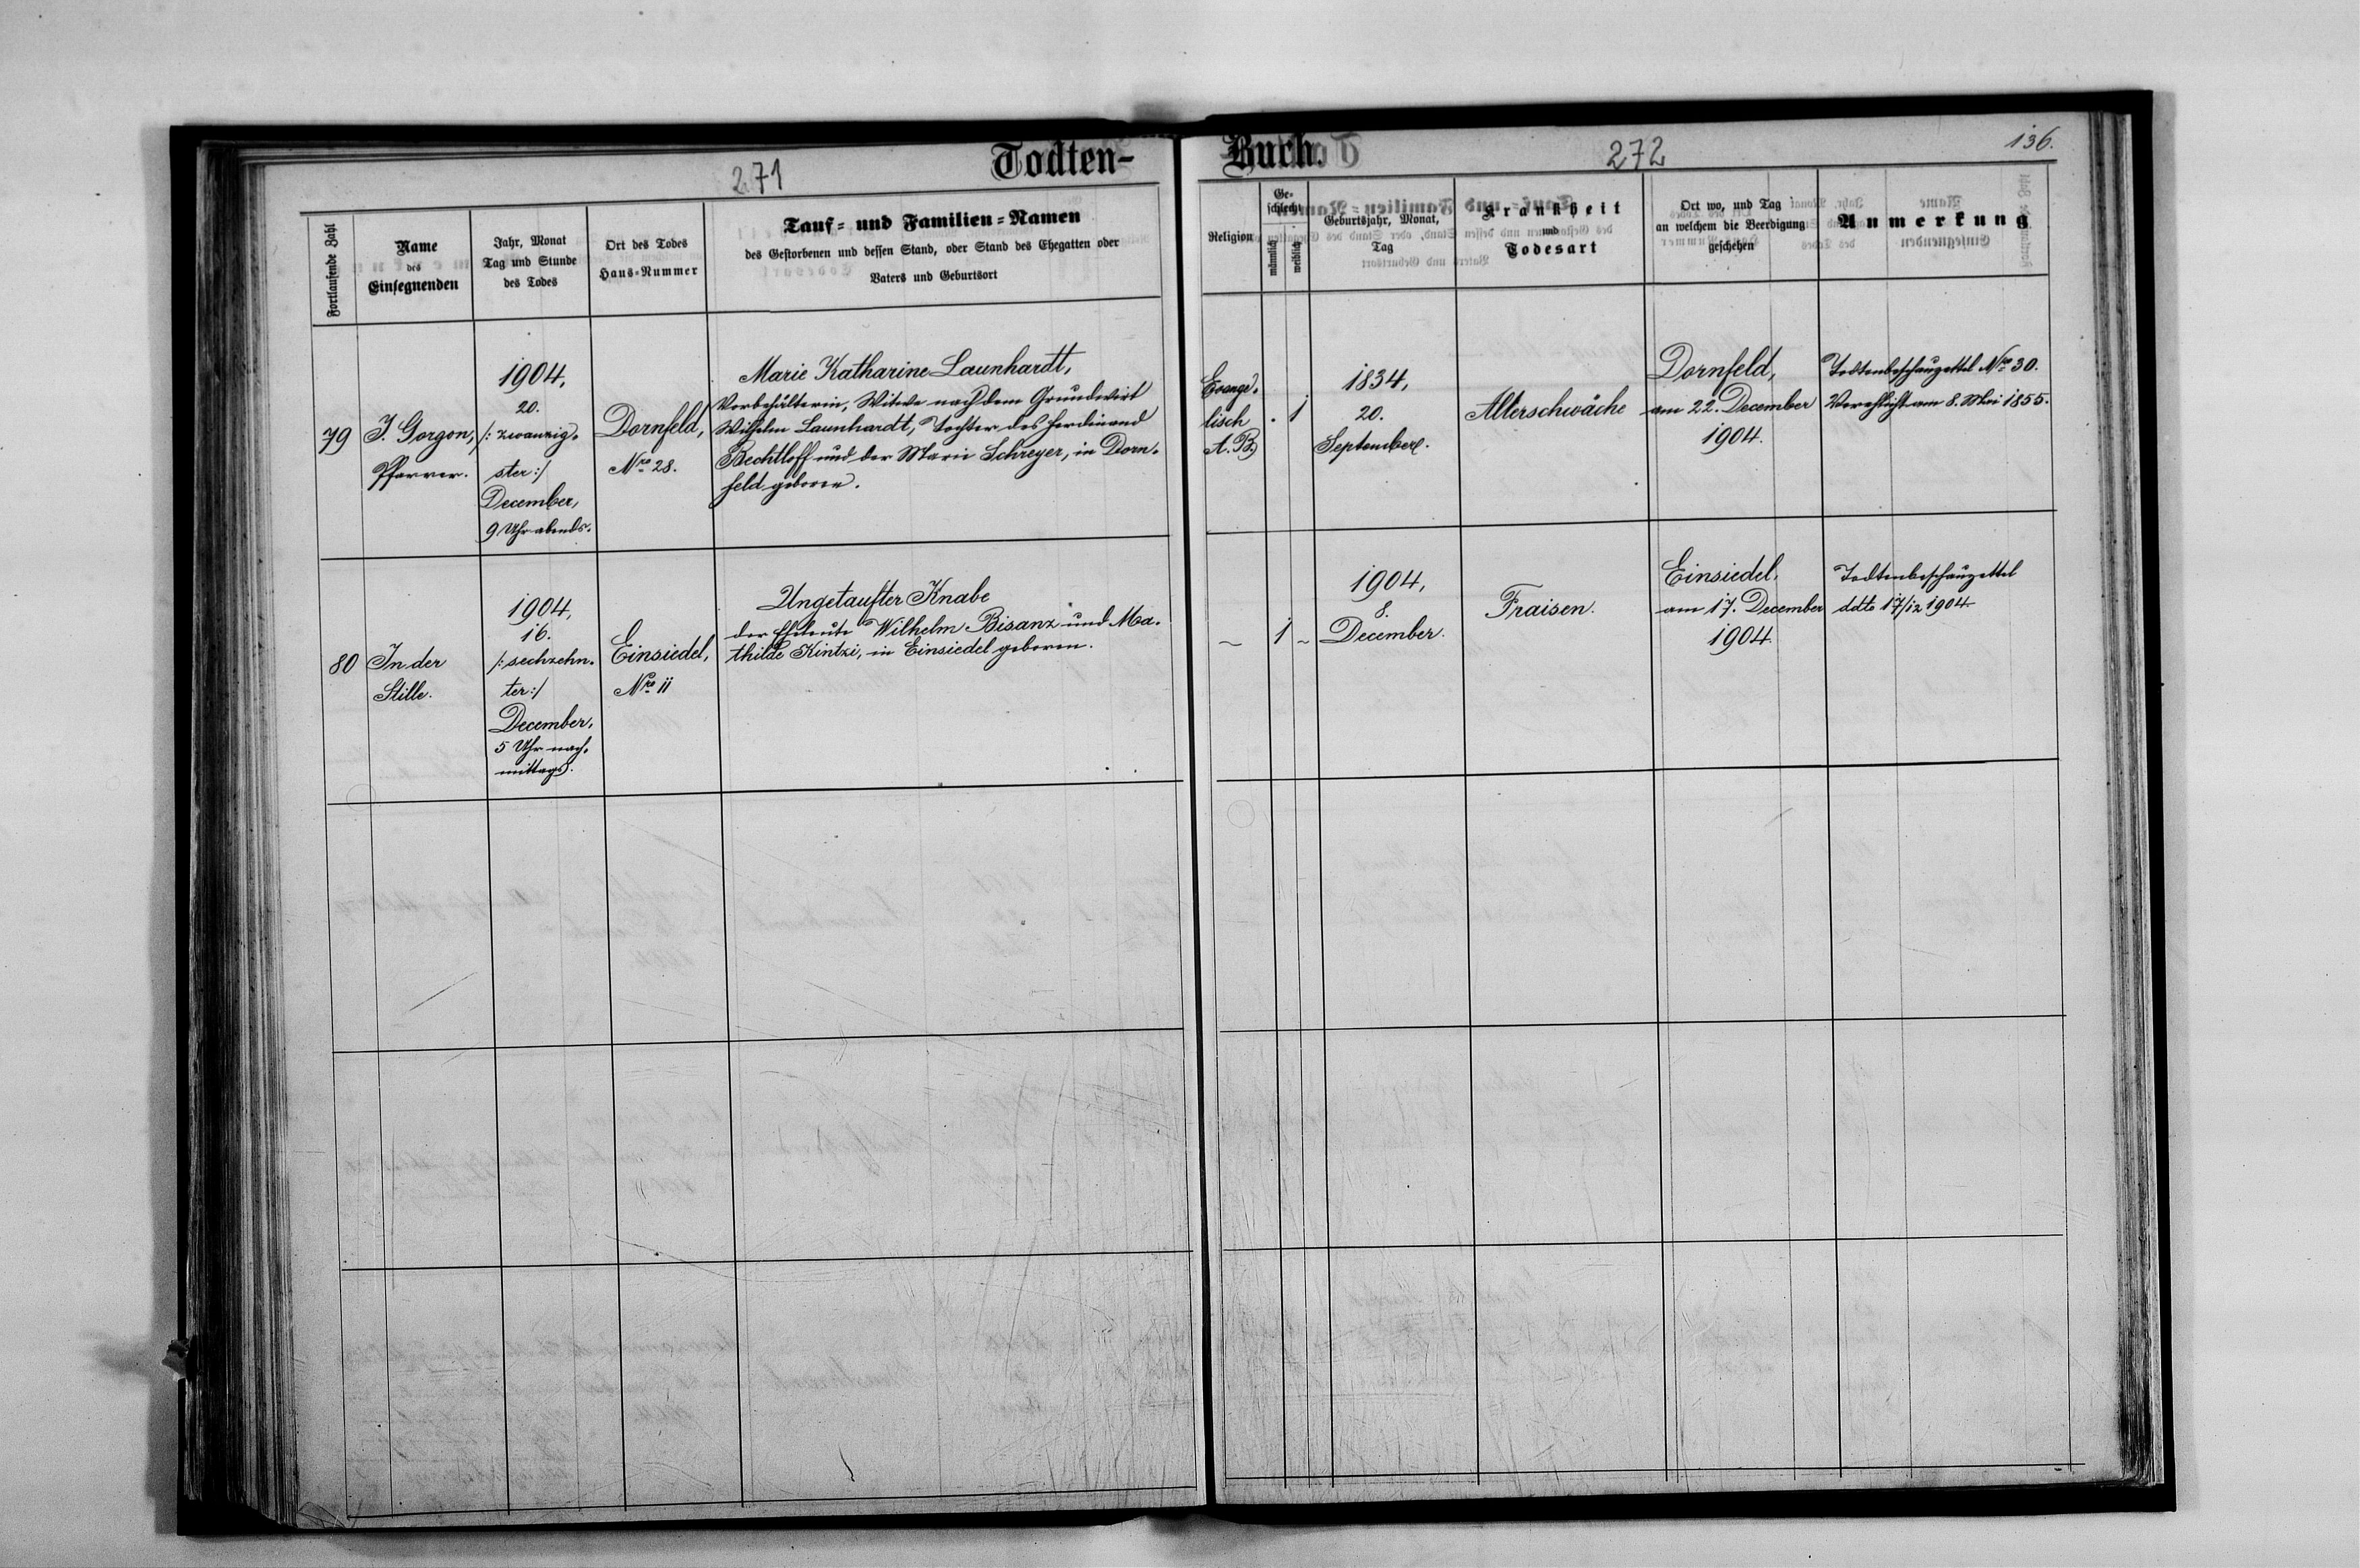 Todten-Buch.
271
272
136.
Fortlaufende Zahl
Name
des
Einsegnenden
Jahr, Monat
Tag und Stunde
des Todes
Ort des Todes
Haus-Nummer
Tauf- und Familien-Namen
des Gestorbenen und dessen Stand, oder Stand des Ehegatten oder
Vaters und Geburtsort
Religion
Ge-
schlecht
männlich
weiblich
Geburtsjahr, Monat,
Tag
Krankheit
und
Todesart
Ort wo, und Tag
an welchem die Beerdigung
geschehen
Anmerkung
79
J. Gorgon,
Pfarrer.
1904,
20.
/: zwanzig-
ster :/
December,
9 Uhr abends.
Dornfeld,
Nro 28.
Marie Katharine Launhardt,
Vorbehälterin, Witwe nach dem Grundwirt
Wilhelm Launhardt, Tochter des Ferdinand
Bechtloff und der Marie Schreyer, in Dorn-
feld geboren.
Evange-
lisch
A. B.
. 1
1834,
20.
September.
Alterschwäche
Dornfeld,
am 22. December
1904.
Todtenbeschauzettel Nro 30.
Verehlicht am 8. Mai 1855.
80
In der
Stille.
1904,
16.
/: sechzehn-
ter :/
December,
5 Uhr nach-
mittags.
Einsiedel,
Nro 11
Ungetaufter Knabe
der Eheleute Wilhelm Bisanz und Ma-
thilde Kintzi, in Einsiedel geboren.
~
1 ~
1904,
8.
December.
Fraisen.
Einsiedel,
am 17. December
1904.
Todtenbeschauzettel
ddto 17/12 1904